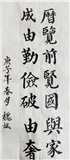 厯覽前賢國與家
成由勤儉破由奢
庚子年春月魏斌